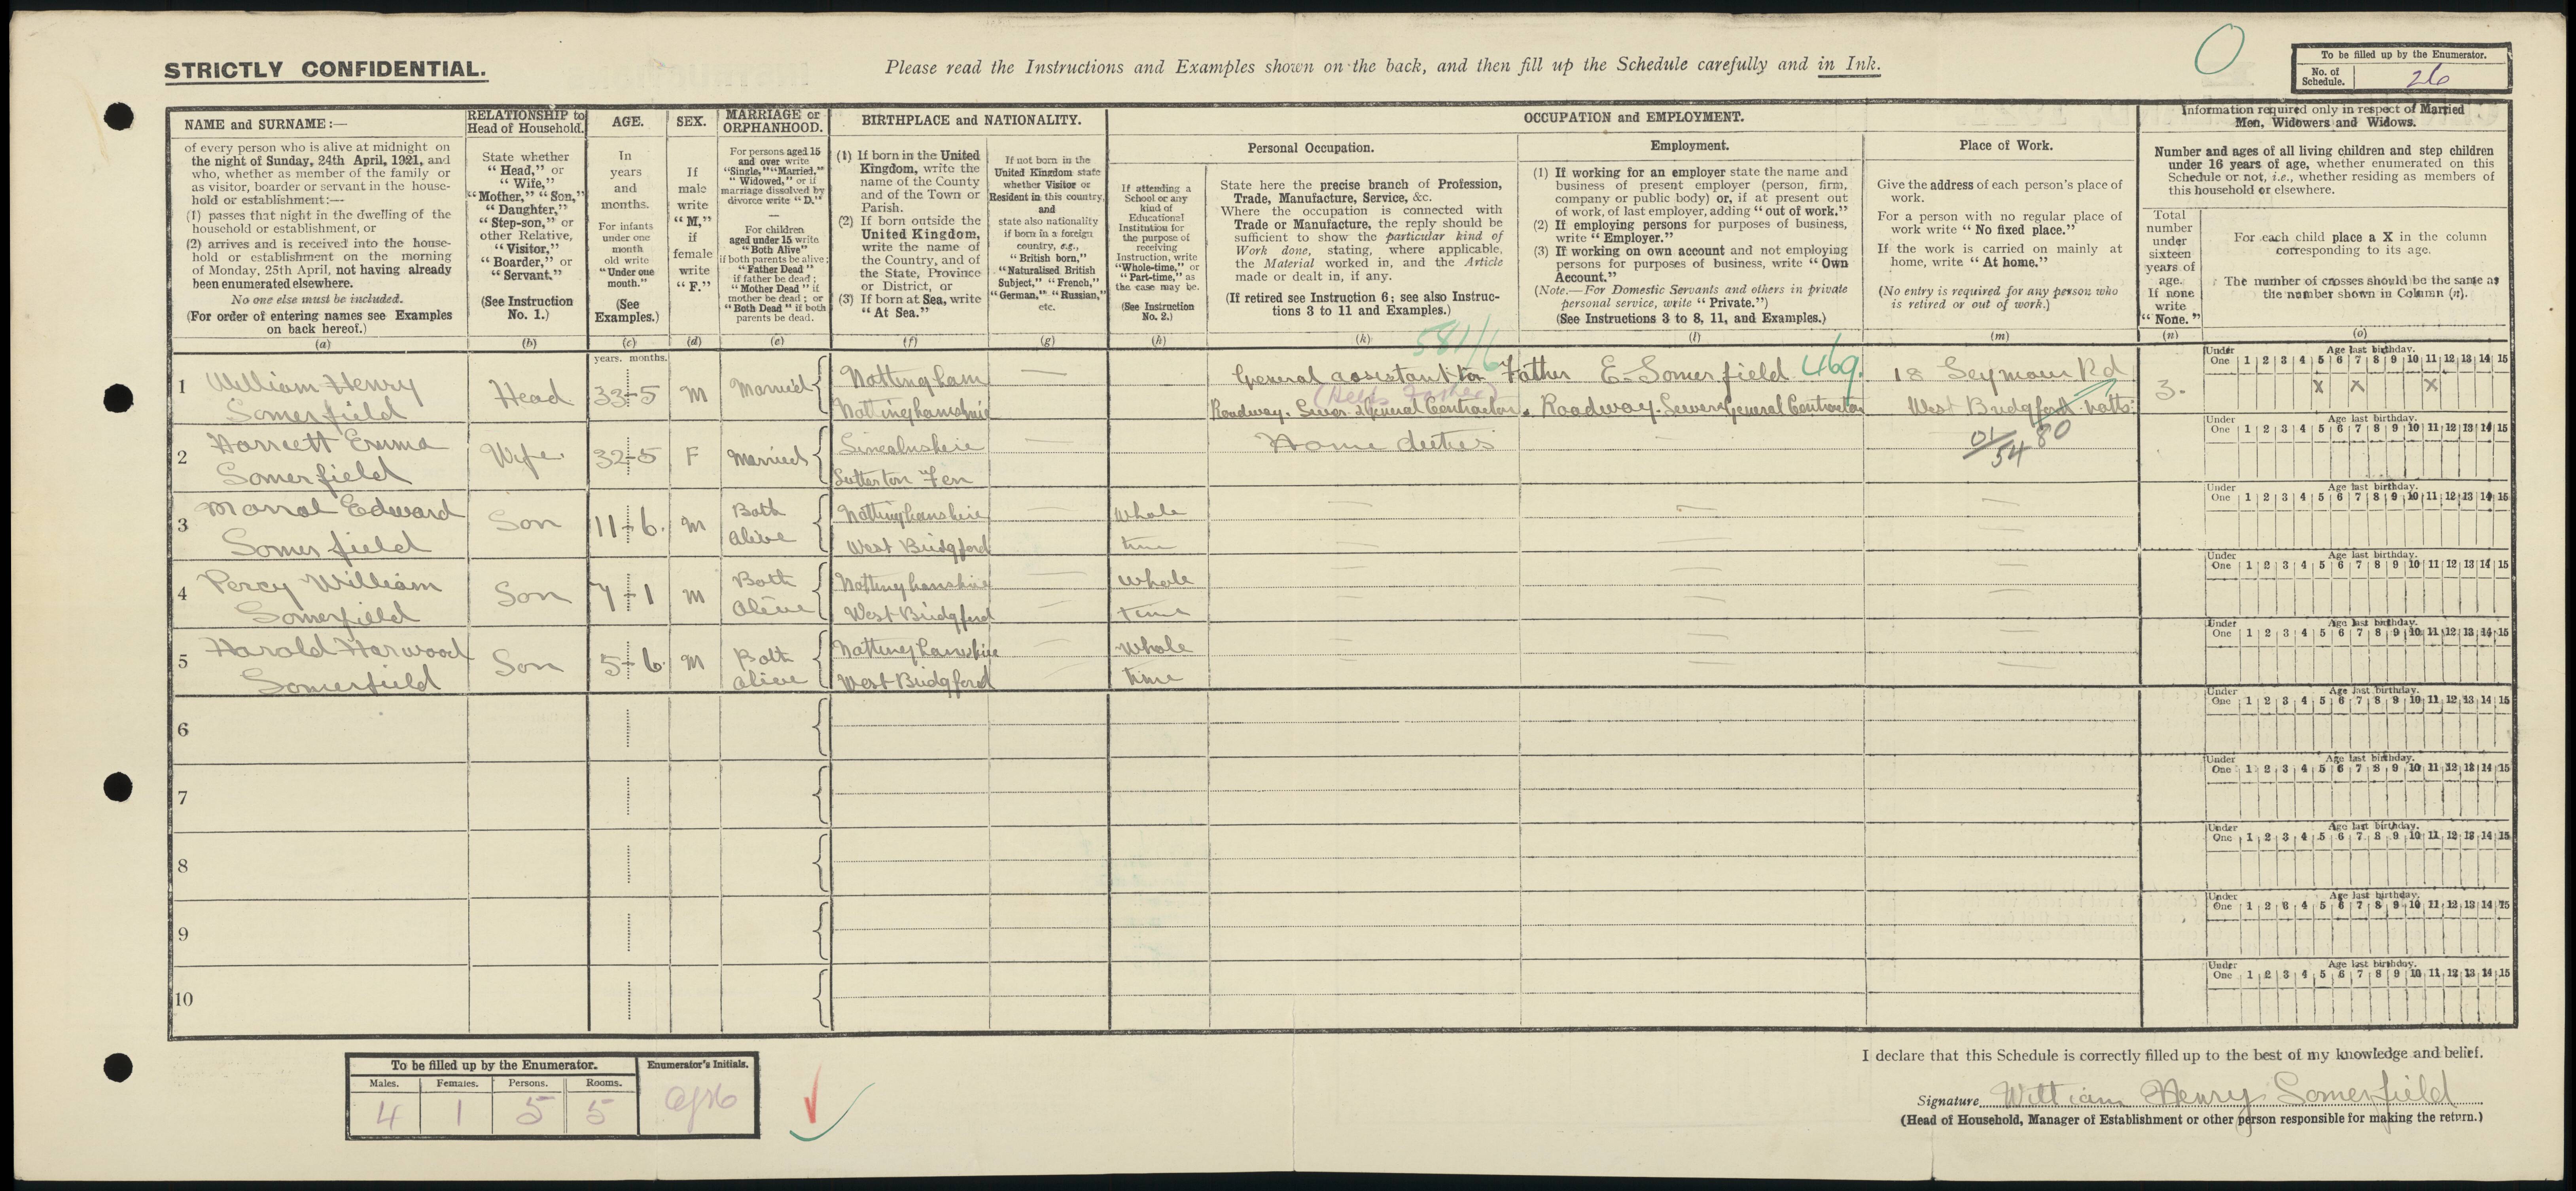 STRICTLY CONFIDENTIAL.
Please read the Instructions and Examples shown on the back, and then fill up the Schedule carefully and in Ink.
To be filled up by the Enumerator.
No. of Schedule. 26
NAME and SURNAME:—
of every person who is alive at midnight on
the night of Sunday, 24th April, 1921, and
who, whether as member of the family or
as visitor, boarder or servant in the house-
hold or establishment:—
(1) passes that night in the dwelling of the
household or establishment, or
(2) arrives and is received into the house-
hold or establishment on the morning
of Monday, 25th April, not having already
been enumerated elsewhere.
No one else must be included.
(For order of entering names see Examples
on back hereof.)
(a)
RELATIONSHIP to
Head of Household.
State whether
"Head," or
"Wife,"
"Mother," "Son,"
"Daughter,"
"Step-son," or
other Relative,
"Visitor,"
"Boarder," or
"Servant."
(See Instruction
No. 1.)
(b)
AGE.
In
years
and
months.
For infants
under one
month
old write
"Under one
month."
(See
Examples.)
(c)
SEX.
If
male
write
"M,"
if
female
write
"F."
(d)
MARRIAGE or
ORPHANHOOD.
For persons aged 15
and over write
"Single," "Married,"
"Widowed," or if
marriage dissolved by
divorce write "D."
—
For children
aged under 15 write
"Both Alive"
if both parents be alive;
"Father Dead"
if father be dead;
"Mother Dead" if
mother be dead; or
"Both Dead" if both
parents be dead.
(e)
BIRTHPLACE and NATIONALITY.
(1) If born in the United
Kingdom, write the
name of the County
and of the Town or
Parish.
(2) If born outside the
United Kingdom,
write the name of
the Country, and of
the State, Province
or District, or
(3) If born at Sea, write
"At Sea."
(f)
If not born in the
United Kingdom state
whether Visitor or
Resident in this country,
and
state also nationality
if born in a foreign
country, e.g.,
"British born,"
"Naturalised British
Subject," "French,"
"German," "Russian,"
etc.
(g)
OCCUPATION and EMPLOYMENT.
If attending a
School or any
kind of
Educational
Institution for
the purpose of
receiving
Instruction, write
"Whole-time," or
"Part-time," as
the case may be.
(See Instruction
No. 2.)
(h)
Personal Occupation.
State here the precise branch of Profession,
Trade, Manufacture, Service, &c.
Where the occupation is connected with
Trade or Manufacture, the reply should be
sufficient to show the particular kind of
Work done, stating, where applicable,
the Material worked in, and the Article
made or dealt in, if any.
(If retired see Instruction 6; see also Instruc-
tions 3 to 11 and Examples.)
(k)
Employment.
(1) If working for an employer state the name and
business of present employer (person, firm,
company or public body) or, if at present out
of work, of last employer, adding "out of work."
(2) If employing persons for purposes of business,
write "Employer."
(3) If working on own account and not employing
persons for purposes of business, write "Own
Account."
(Note.—For Domestic Servants and others in private
personal service, write "Private.")
(See Instructions 3 to 8, 11, and Examples.)
(l)
Place of Work.
Give the address of each person's place of
work.
For a person with no regular place of
work write "No fixed place."
If the work is carried on mainly at
home, write "At home."
(No entry is required for any person who
is retired or out of work.)
(m)
Information required only in respect of Married
Men, Widowers and Widows.
Number and ages of all living children and step children
under 16 years of age, whether enumerated on this
Schedule or not, i.e., whether residing as members of
this household or elsewhere.
Total
number
under
sixteen
years of
age.
If none
write
"None."
(n)
For each child place a X in the column
corresponding to its age.
The number of crosses should be the same as
the number shown in Column (n).
(o)
years. months.
581/6
1 William Henry Somerfield Head 33-5 M Married Nottingham Nottinghamshire — General assistant to Father E. Somerfield 469.
(Helps Father)
Roadway. Sewer & General Contractor. Roadway. Sewer & General Contractor
18 Seymour Rd
West Bridgford. Notts.
3.
Under One 1 2 3 4 5 6 7 8 9 10 11 12 13 14 15 Age last birthday.
X X X
2 Harriett Emma Somerfield Wife. 32-5 F Married Lincolnshire Sutterton Fen — Home duties —
01/54 80
Under One 1 2 3 4 5 6 7 8 9 10 11 12 13 14 15 Age last birthday.
3 Edward Somerfield Son 11-6. M Both alive Nottinghamshire West Bridgford — whole time —
Under One 1 2 3 4 5 6 7 8 9 10 11 12 13 14 15 Age last birthday.
4 Percy William Somerfield Son 7-1 M Both Alive Nottinghamshire West Bridgford — whole time —
Under One 1 2 3 4 5 6 7 8 9 10 11 12 13 14 15 Age last birthday.
5 Harold Harwood Somerfield Son 5-6. M Both alive Nottinghamshire West Bridgford — whole time —
Under One 1 2 3 4 5 6 7 8 9 10 11 12 13 14 15 Age last birthday.
6
Under One 1 2 3 4 5 6 7 8 9 10 11 12 13 14 15 Age last birthday.
7
Under One 1 2 3 4 5 6 7 8 9 10 11 12 13 14 15 Age last birthday.
8
Under One 1 2 3 4 5 6 7 8 9 10 11 12 13 14 15 Age last birthday.
9
Under One 1 2 3 4 5 6 7 8 9 10 11 12 13 14 15 Age last birthday.
10
Under One 1 2 3 4 5 6 7 8 9 10 11 12 13 14 15 Age last birthday.
To be filled up by the Enumerator.
Enumerator's Initials.
Males. Females. Persons. Rooms.
4 1 5 5
I declare that this Schedule is correctly filled up to the best of my knowledge and belief.
Signature William Henry Somerfield
(Head of Household, Manager of Establishment or other person responsible for making the return.)